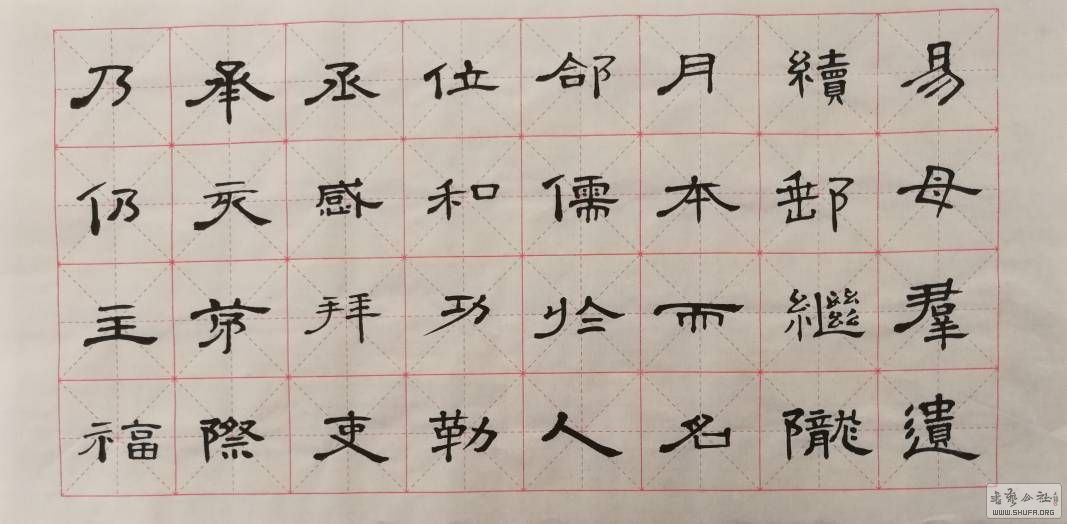 易母羣遺
續郵繼隴
月本而名
郃儒於人
位和功勒
丞感拜吏
承亥第際
乃仍主福
WWW.SHUFA.ORG